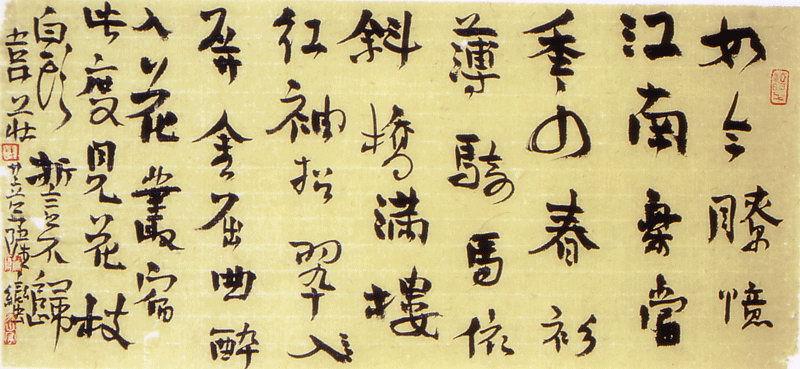 如今憶
江南樂當
秊少春衫
薄騎馬依
斜橋滿樓
紅袖招翠
屏金屈曲醉
入花叢宿
此度見花枝
白頭誓不歸
韋莊